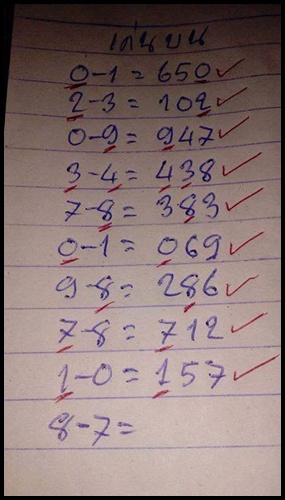 เด่นบน
0-1 = 650 ✓
2-3 = 102 ✓
0-9 = 947 ✓
3-4 = 438 ✓
7-8 = 383 ✓
0-1 = 069 ✓
9-8 = 286 ✓
7-8 = 712 ✓
1-0 = 157 ✓
8-7 =